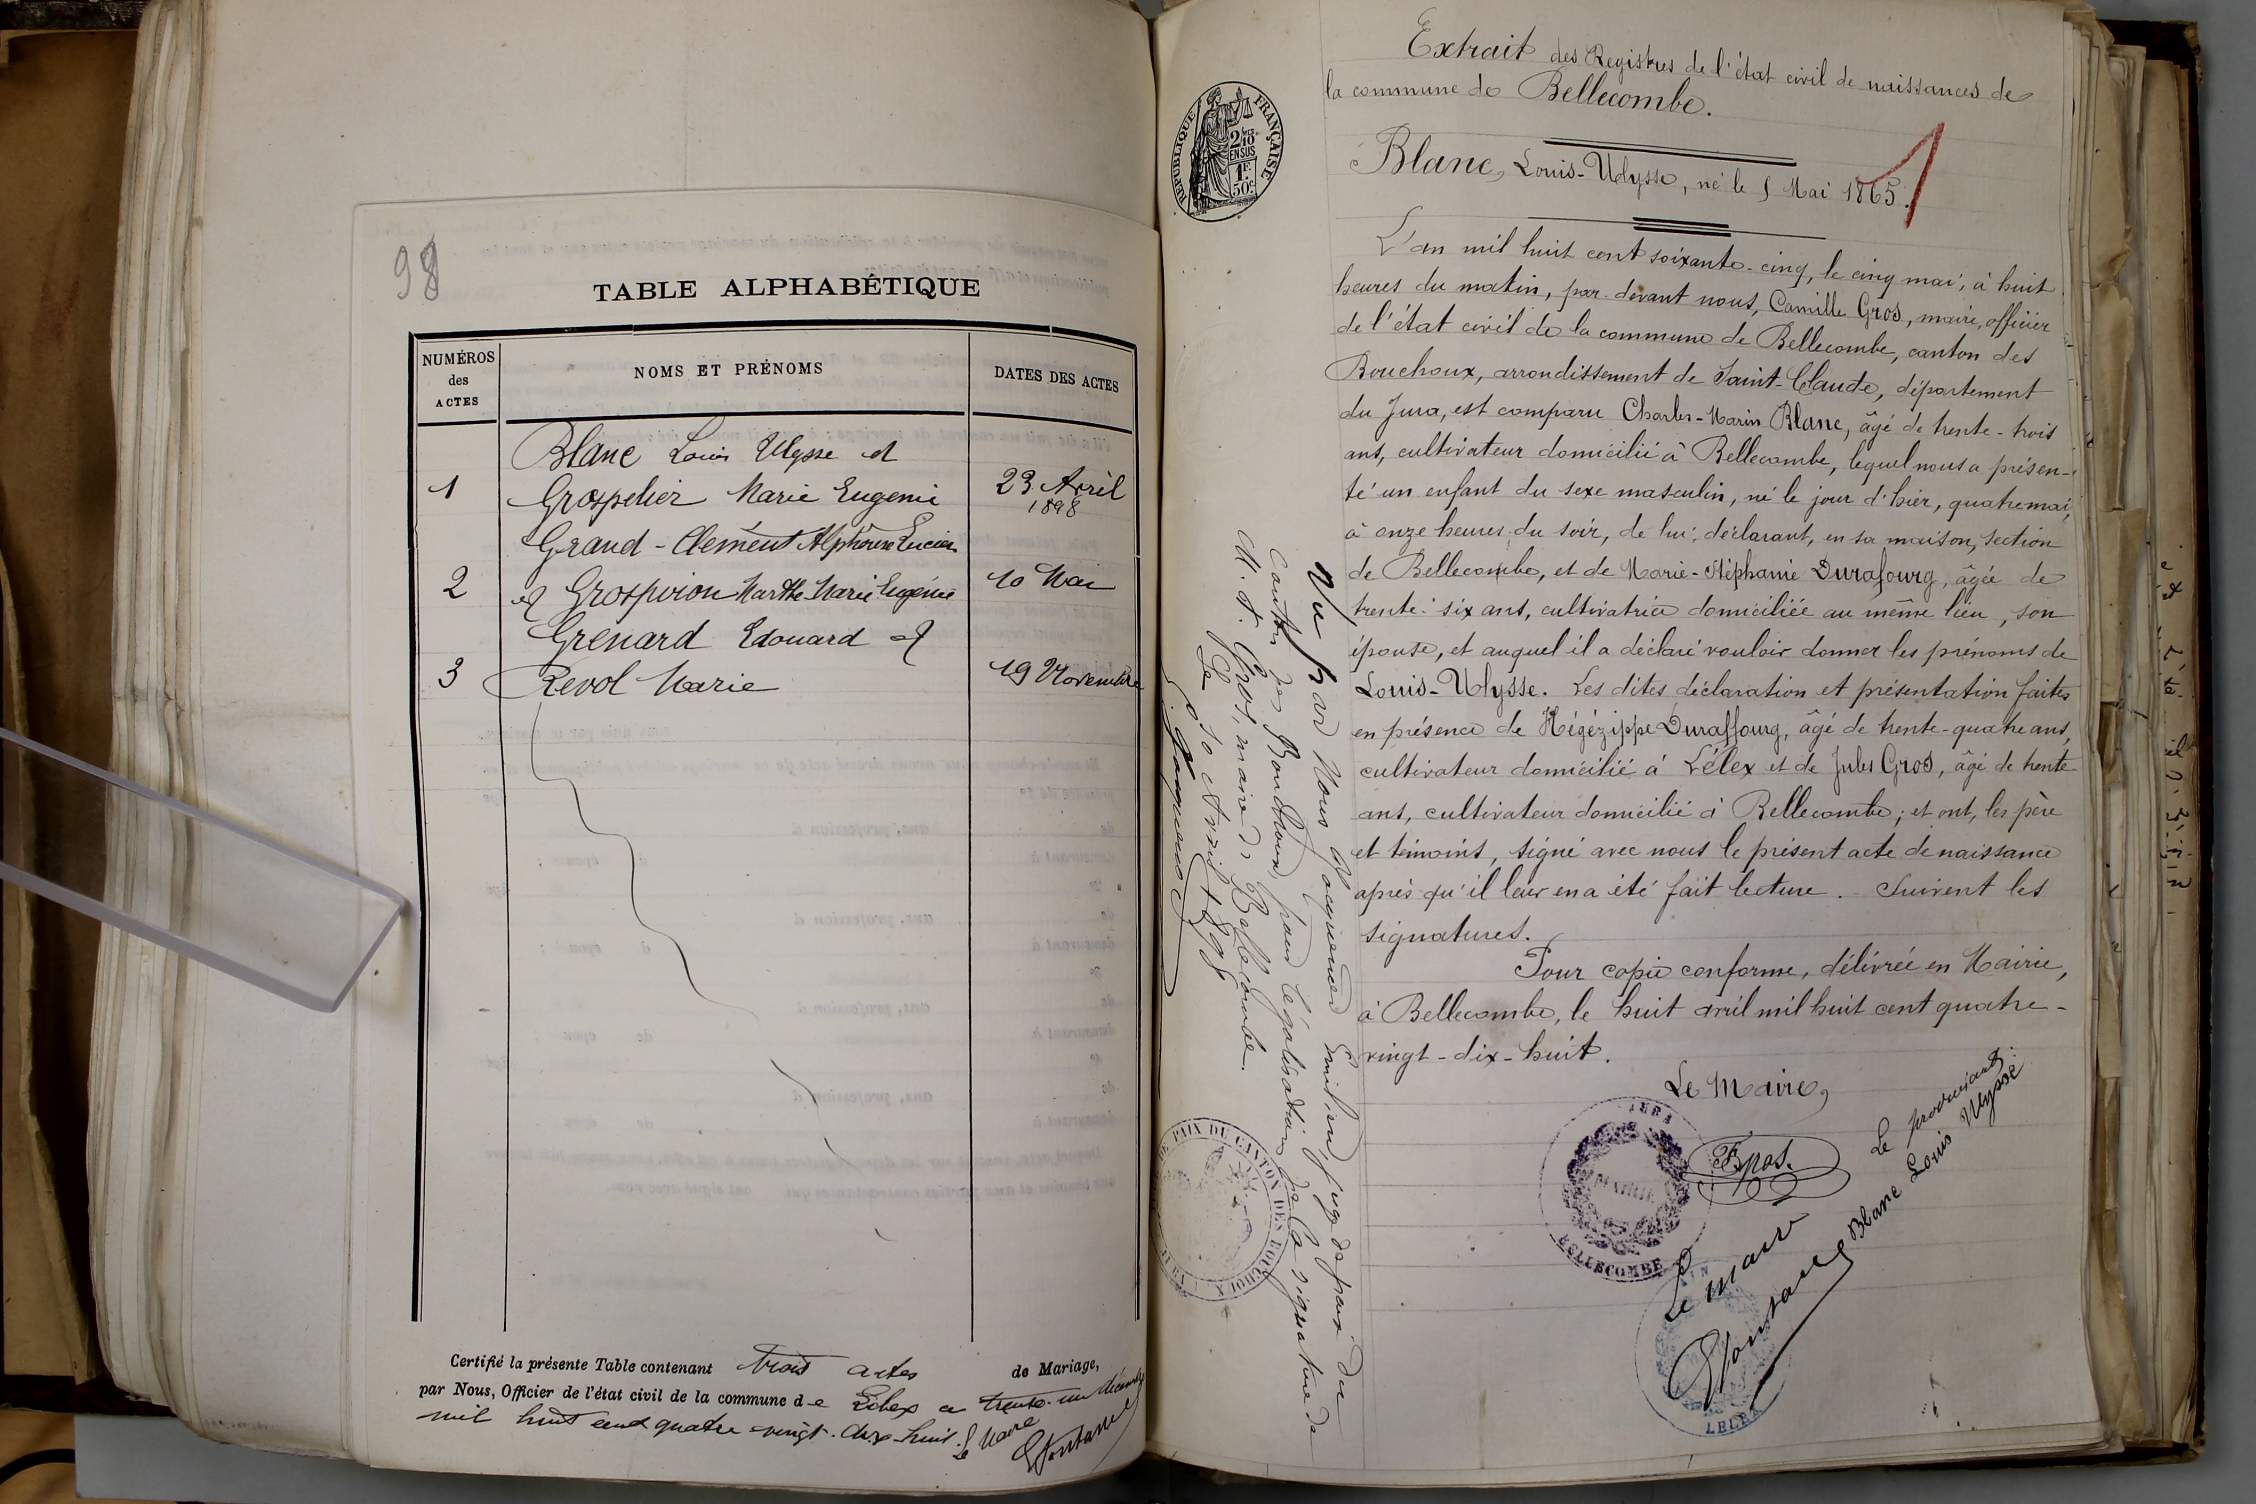 98
TABLE ALPHABÉTIQUE
NUMÉROS
des
ACTES
NOMS ET PRÉNOMS
DATES DES ACTES
Blanc Louis Ulysse et
1 Grospelier Marie Eugenie 23 Avril
1898
Grand-Clément Alphonse Lucien
2 et Grospiron Marthe Marie Eugénie 10 Mai
Grenard Edouard et
3 Revol Marie 19 Novembre
Certifié la présente Table contenant trois actes de Mariage,
par Nous, Officier de l'état civil de la commune de Lélex ce trente-un décembre
mil huit cent quatre vingt-dix-huit. Le Maire
Extrait des Registres de l'état civil de naissances de
la commune de Bellecombe.
RÉPUBLIQUE FRANÇAISE
2/10
EN SUS
1F.
50c
Blanc, Louis-Ulysse, né le 5 Mai 1865.
1
L'an mil huit cent soixante-cinq, le cinq mai, à huit
heures du matin, par-devant nous, Camille Gros, maire, officier
de l'état civil de la commune de Bellecombe, canton des
Bouchoux, arrondissement de Saint-Claude, département
du Jura, est comparu Charles-Marin Blanc, âgé de trente-trois
ans, cultivateur domicilié à Bellecombe, lequel nous a présen-
té un enfant du sexe masculin, né le jour d'hier, quatre mai,
à onze heures du soir, de lui, déclarant, en sa maison, section
de Bellecombe, et de Marie-Stéphanie Durafourg, âgée de
trente-six ans, cultivatrice domiciliée au même lieu, son
épouse, et auquel il a déclaré vouloir donner les prénoms de
Louis-Ulysse. Les dites déclaration et présentation faites
en présence de Hégézippe Duraffourg, âgé de trente-quatre ans,
cultivateur domicilié à Lélex et de Jules Gros, âgé de trente
ans, cultivateur domicilié à Bellecombe; et ont, les père
et témoins, signé avec nous le présent acte de naissance
après qu'il leur en a été fait lecture. Suivent les
signatures.
Pour copie conforme, délivrée en Mairie,
à Bellecombe, le huit avril mil huit cent quatre-
vingt-dix-huit.
Le Maire,
MAIRIE
JURA
BELLECOMBE
Le maire
LELEX
Blanc Louis Ulysse
Vu par Nous Jacquenod Emilien, juge de paix du
canton des Bouchoux, pour légalisation de la signature de
M. F. Gros, maire de Bellecombe.
Le 10 Avril 1898
Jacquenod
DE PAIX DU CANTON DES BOUCHOUX